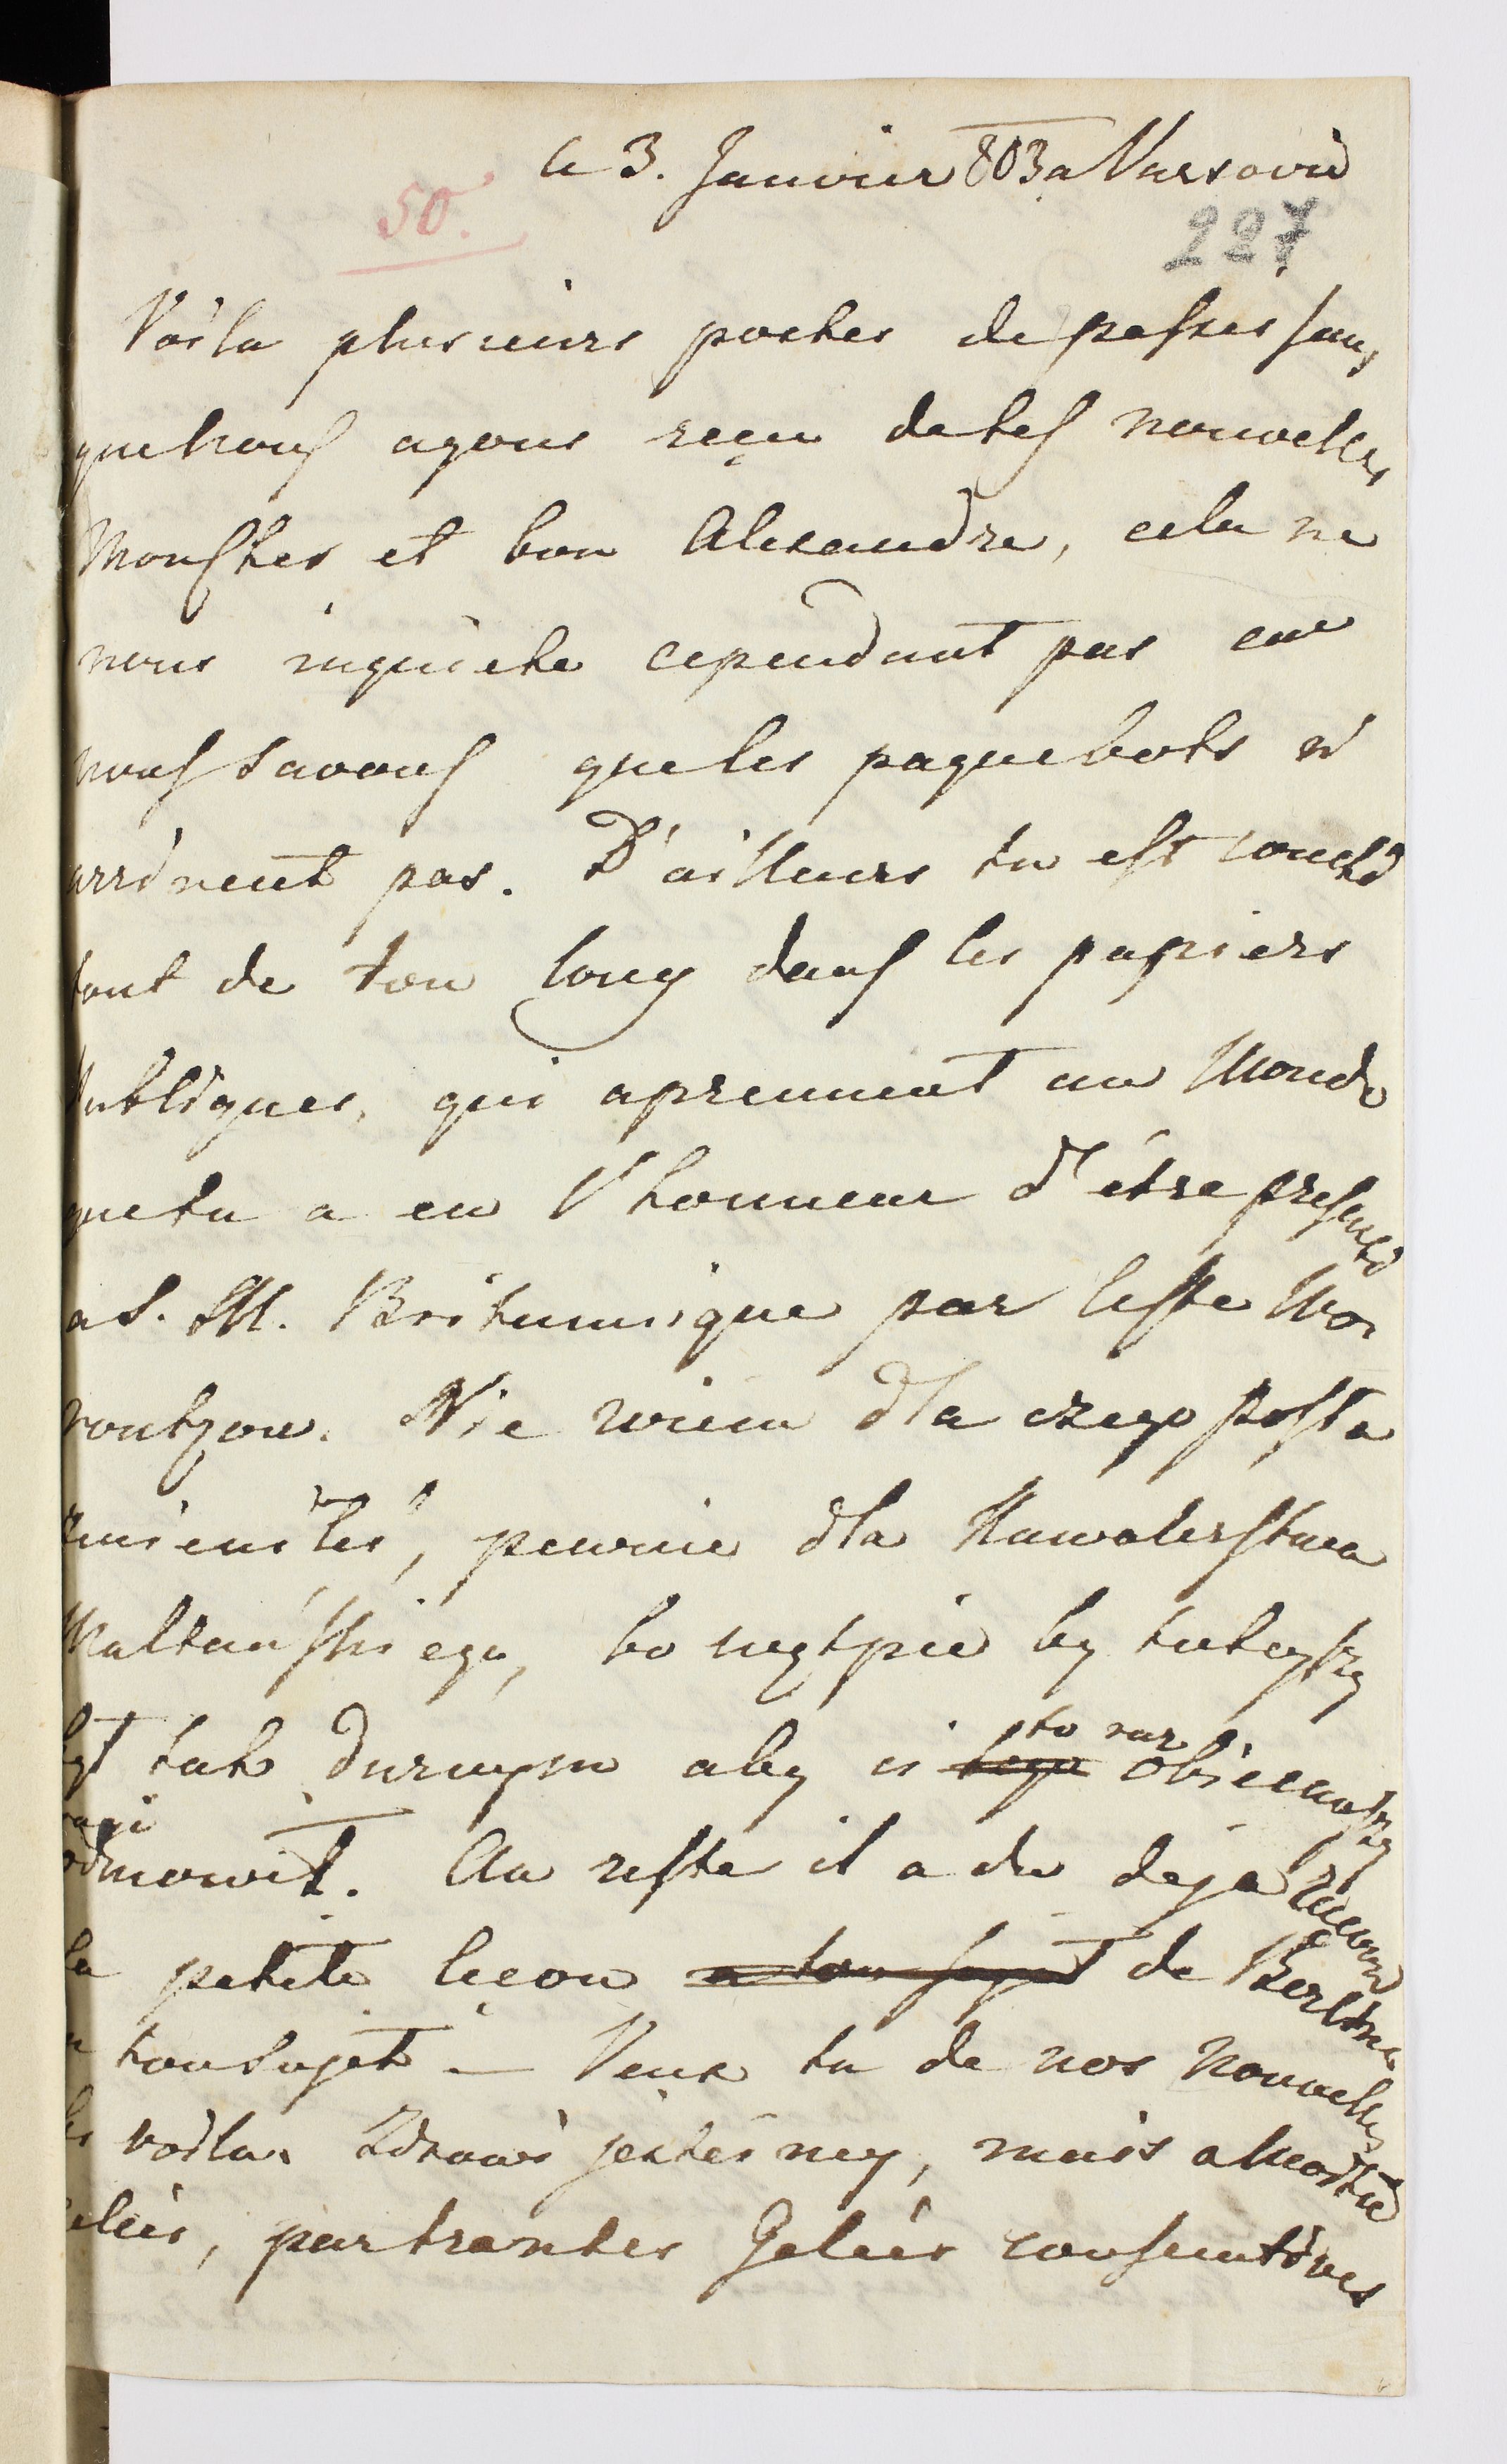 le 3. Janvier 803 a Varsovie
50.
227
Voila plusieurs postes de passes sans
que nous ayons reçu de tes nouvelles
Monster et bon Alexandre, cela ne
nous inquiete cependant pas car
nous savons que les paquebots n'
arrivent pas. D'ailleurs tu est couché
tout de ton long dans les papiers
publiques, qui aprennent au Monde
que tu a eu l'honneur d'étre presenté
a S. M. Britannique par le Wo
rontzow. Nie wiem dla czego posła
zmieniłeś, pewnie dla Kawalerstwa
Maltańskiego, bo wątpie by tuteyszy
był tak durnym aby ci to raz obiecawszy
odmowił. Au reste il a du deja recevoir
la petite leçon a ton sujet de Berline
a ton sujet – Veux tu de nos nouvelles
les voila. Zdrowi jesteśmy, mais a Moitié
gelées, par trantes Gelées consecutives